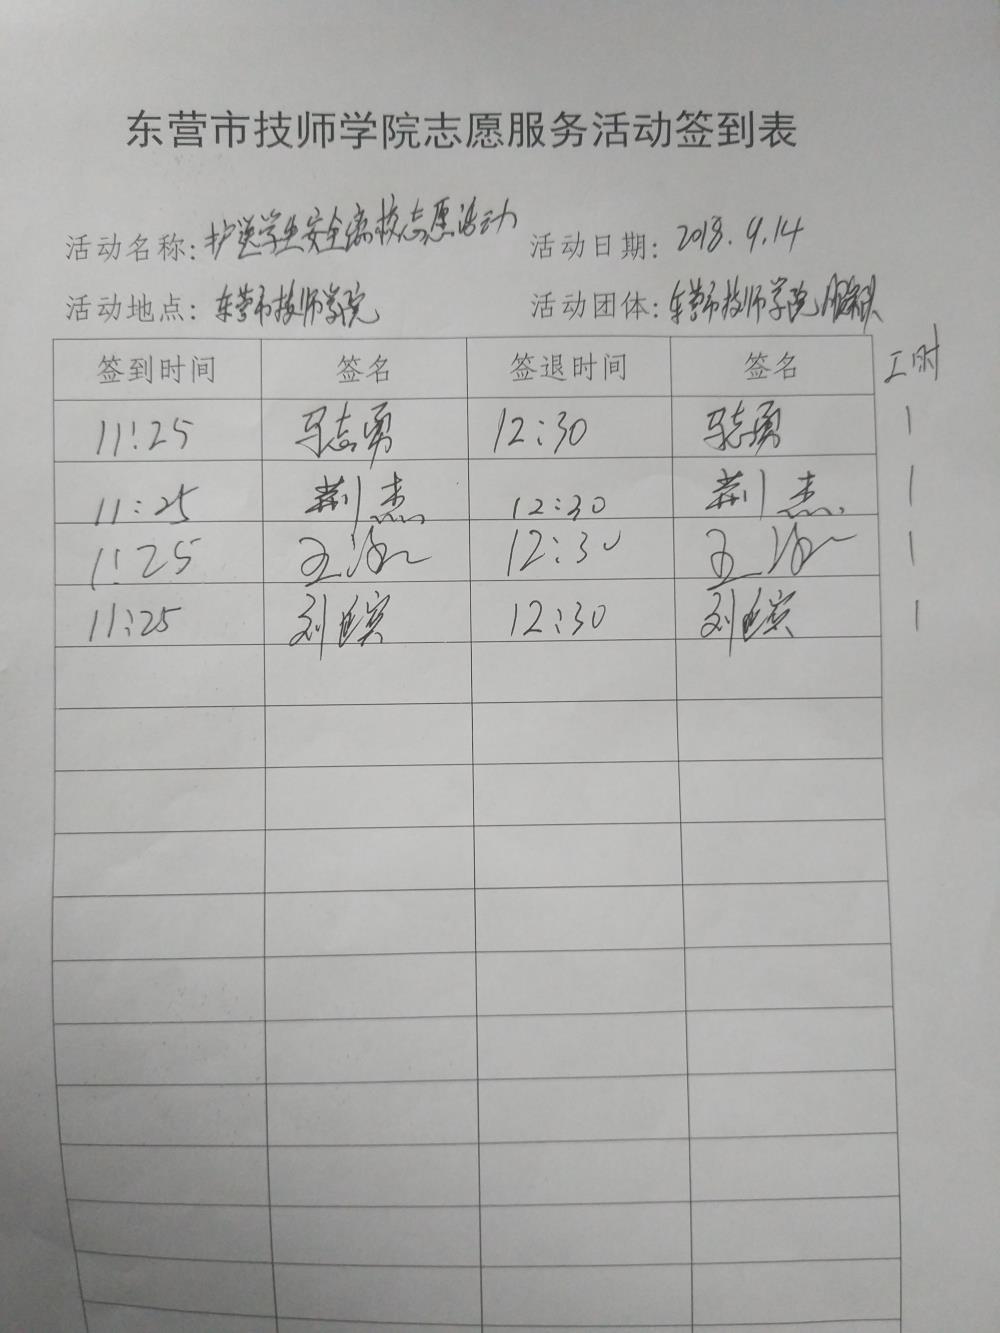 东营市技师学院志愿服务活动签到表
活动名称: 护送学生安全离校志愿活动 活动日期: 2018.9.14
活动地点: 东营市技师学院 活动团体: 东营市技师学院服务队
签到时间 签名 签退时间 签名 工时
11:25 马志勇 12:30 马志勇 1
11:25 荆杰 12:30 荆杰 1
11:25 王 12:30 王 1
11:25 刘 12:30 刘 1